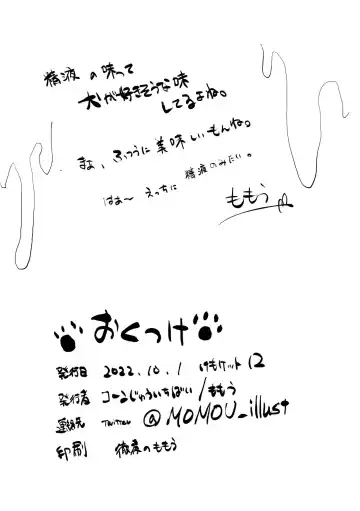 精液の味って
犬が好きそうな味
してるよね。
まぁ、ふつうに美味しいもんね。
はぁ〜えっちに精液のみたい。
ももう
おくつけ
発行日 2022.10.1 けもケット12
発行者 コーンじゅういちばい/ももう
連絡先 Twitter @MOMOU_illust
印刷 徹夜のももう